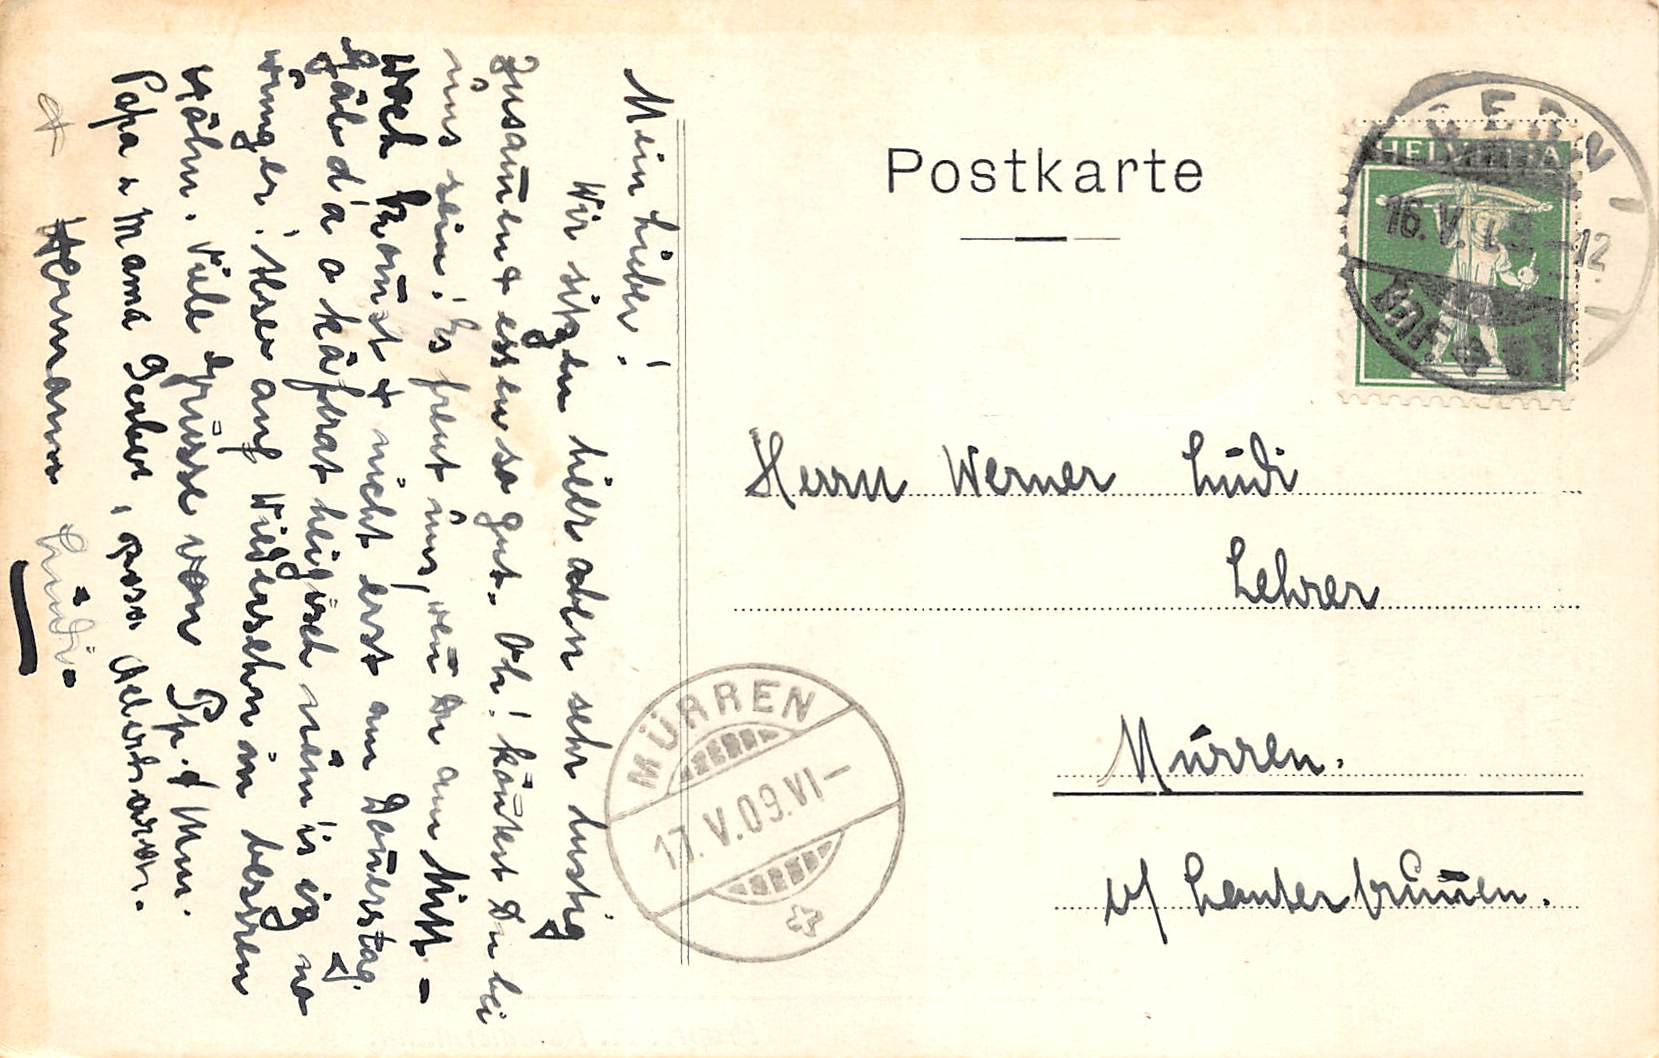 Postkarte
HELVETIA
16. V. 09 -12
Herrn Werner Lüdi
Lehrer
Mürren.
o/ Lauterbrunnen.
MÜRREN
17. V. 09. VI-
Mein Lieber!
Wir sitzen hier oben sehr lustig
zusam̄en & essen so gut. Oh! kön̄test Du bei
uns sein! Es freut uns, wen̄ Du am Mitt-
woch kom̄st & nicht erst am Don̄erstag.
Gäb d'a
wunger! Also auf Wiedersehn in bessren
Viele Grüsse von
Papa u Mama Gerber,
& Hermann Lüdi.